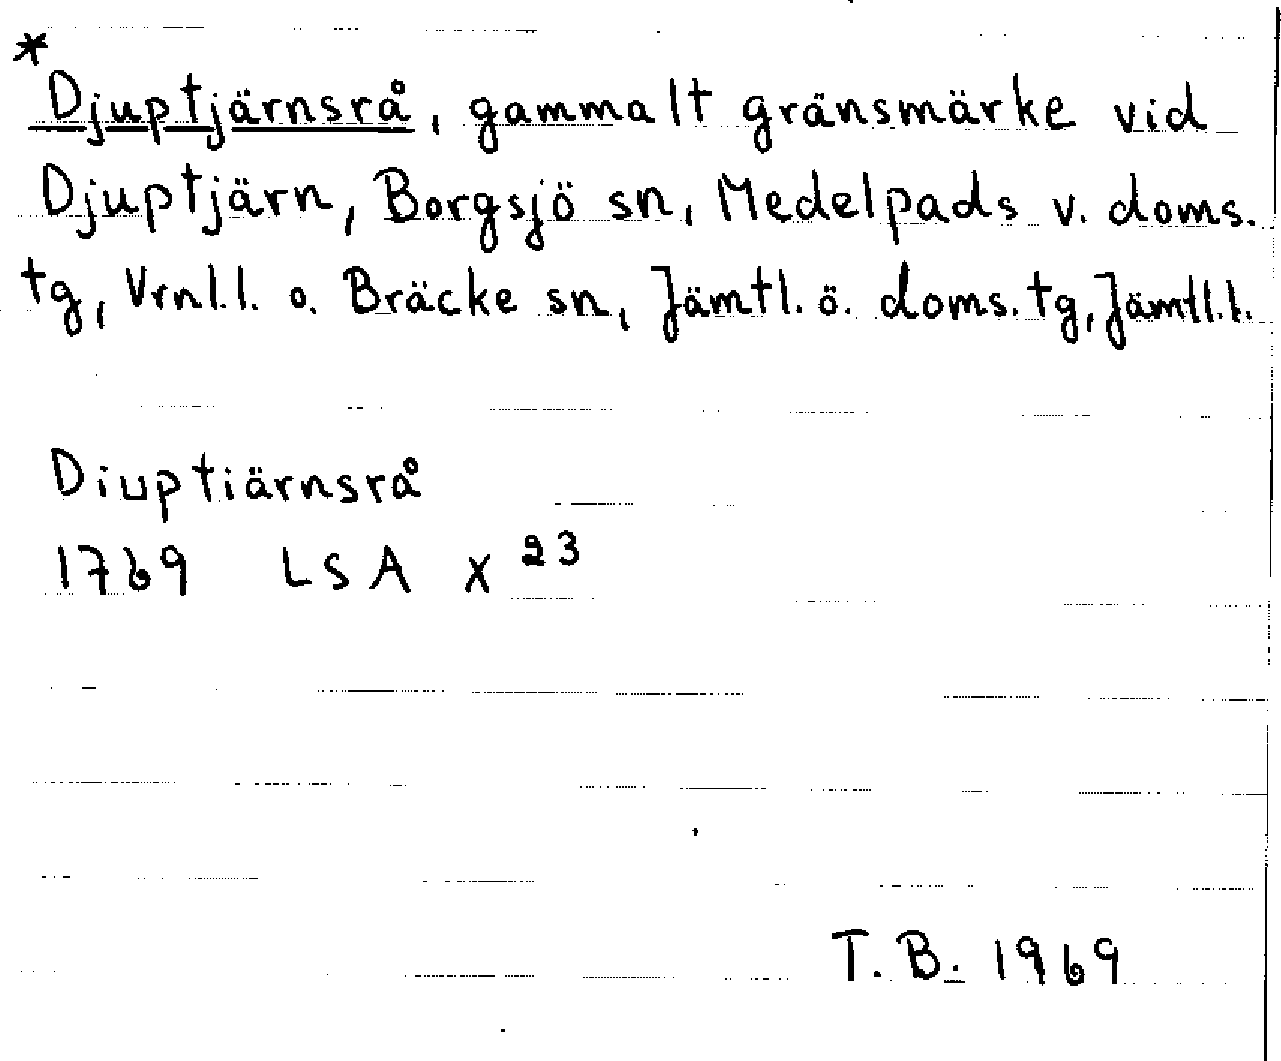 *
Djuptjärnsrå, gammalt gränsmärke vid
Djuptjärn, Borgsjö sn, Medelpads v. doms.
tg, Vrnl.l. o. Bräcke sn, Jämtl. ö. doms. tg, Jämtl.l.
Diuptiärnsrå
1769 LSA X 23
T. B. 1969